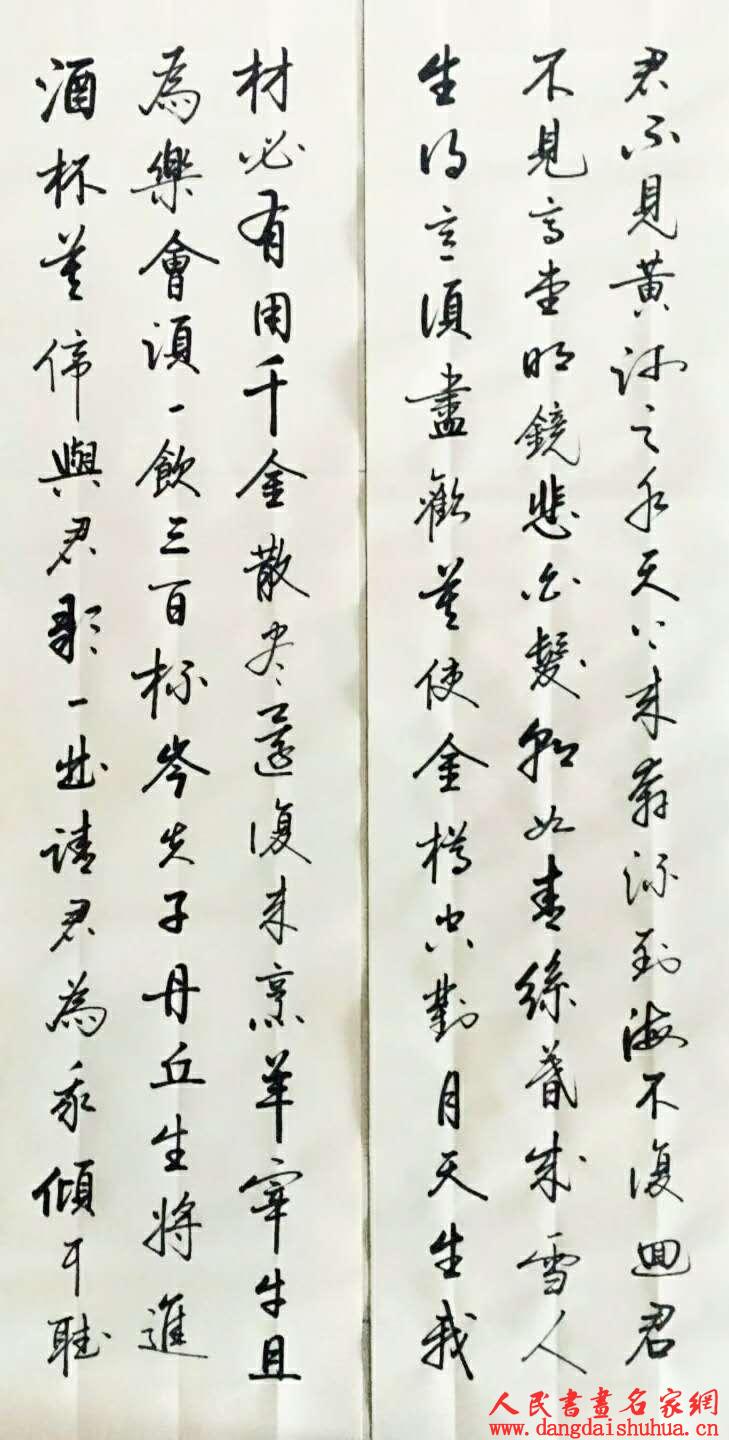 君不見黃河之水天上来奔流到海不復迴君
不見高堂明鏡悲白髮朝如青絲暮成雪人
生得意須盡歡莫使金樽空對月天生我
材必有用千金散尽還復来烹羊宰牛且
為樂會須一飲三百杯岑夫子丹丘生將進
酒杯莫停與君歌一曲請君為我傾耳聽
人民書畫名家網
www.dangdaishuhua.cn